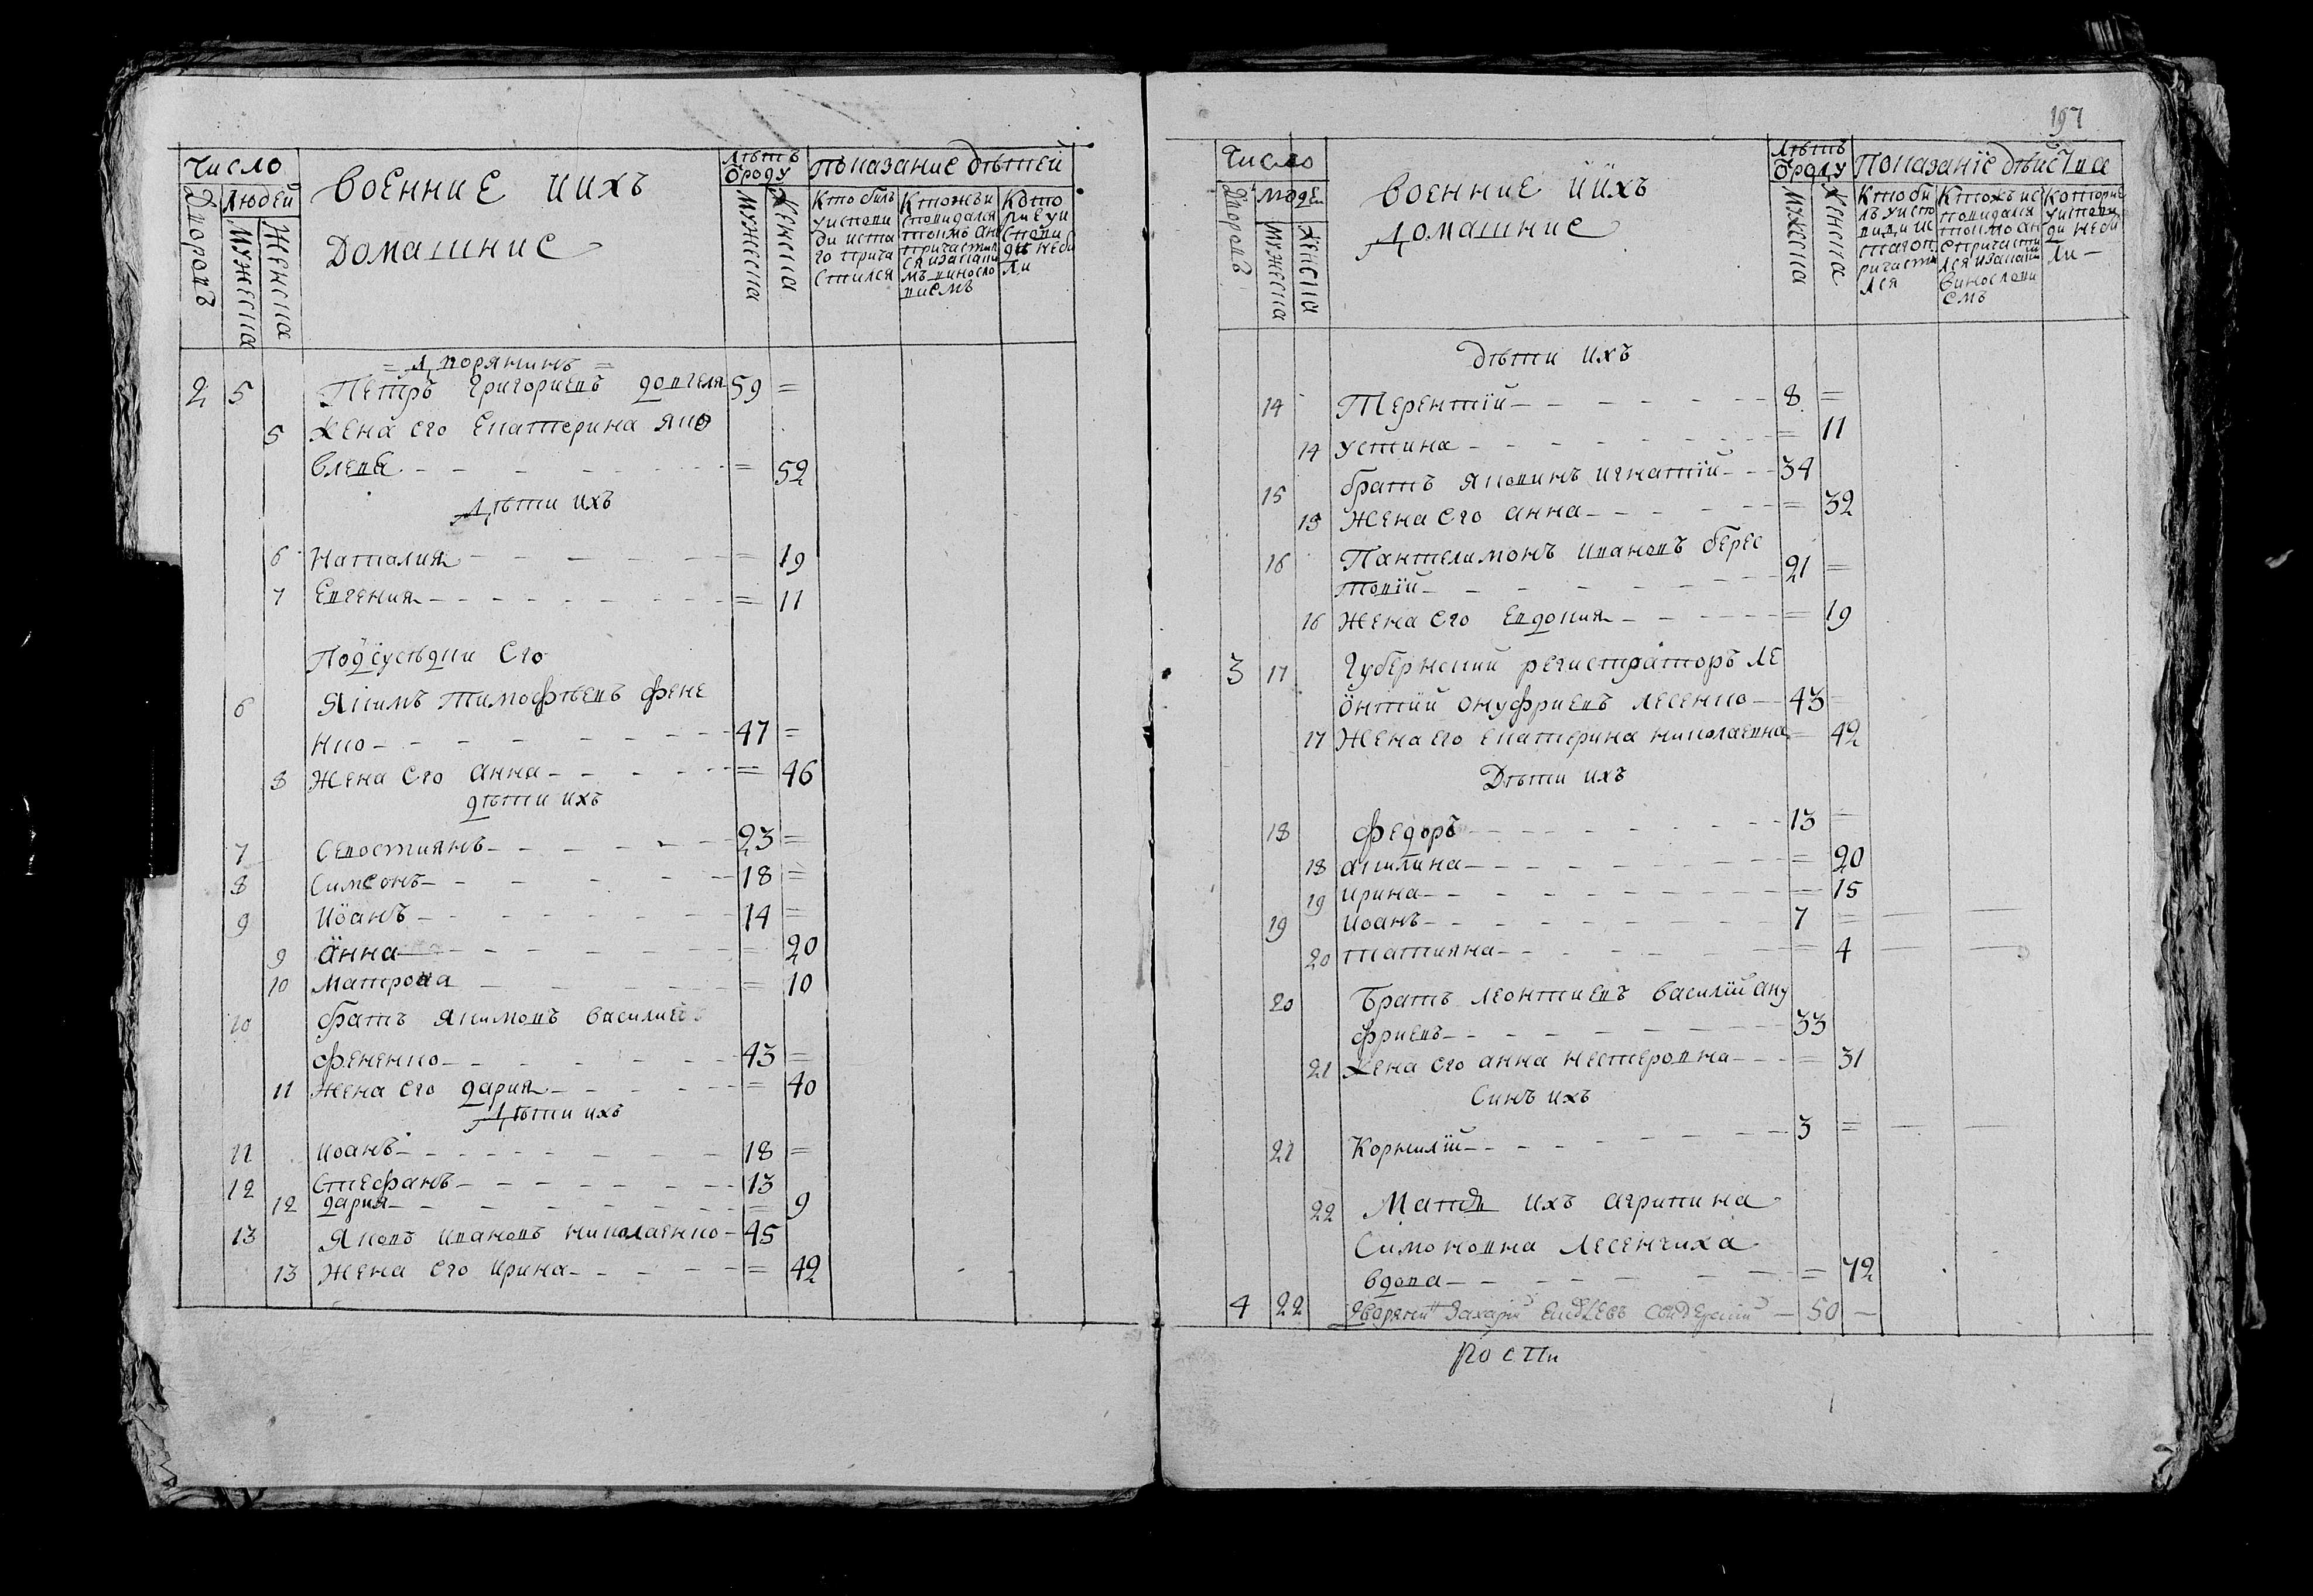 Число
Дворовъ
Людей
Мужеска
Женска
Военние и ихъ
Домашние
Лѣтъ
Ѿроду
Мужеска
Женска
Показание дѣтей
Кто билъ
у испови
ди и ста
го прича
стился
Кто же и
споведался
тоимъ а не
причастил
ся и за каки
мъ виносло
виемъ
Кото
рие у и
спови
ди не би
ли
= Дворянинъ =
2 5 Петръ Григориевъ Довгеля 59 =
5 Жена его Екатерина Яко
влева = 52
Дѣти ихъ
6 Наталия = 19
7 Евгения = 11
Подсусѣдки его
6 Якимъ Тимофѣевъ Фене
нко 47 =
8 Жена его Анна = 46
Дѣти ихъ
7 Севостиянъ 23 =
8 Симеонъ 18 =
9 Иоанъ 14 =
9 Анна = 20
10 Матрона = 10
10 братъ Якимовъ Василий
Фененко 43 =
11 Жена его Дария = 40
Дѣти ихъ
11 Иоанъ 18 =
12 Стефанъ 13
12 Дария = 9
13 Яковъ Ивановъ Николаенко 45
13 Жена его Ирина = 42
197
Число
Дворовъ
Людей
Мужеска
Женска
Военние и ихъ
Домашние
Лѣтъ
Ѿроду
Мужеска
Женска
Показанїе дѣйства
Кто би
лъ у испо
види и с
таго п
ричасти
лся
Кто жъ ис
поведался
тоимо а н
е причасти
лся и за каким
винослови
емъ
Которие
у испови
ди не би
ли
Дѣти ихъ
14 Терентїй 8 =
14 Устина = 11
15 братъ Яковинъ Игнатїй 34
15 Жена его Анна = 32
16 Пантелимонъ Ивановъ Берес
товїй 21 =
16 Жена его Евдокия = 19
3 17 Губернский регистраторъ Ле
онтий Онуфриевъ Лесенко 43 =
17 Жена его Екатерина Николаевна = 42
Дѣти ихъ
18 Федоръ 13 =
18 Акилина = 20
19 Ирина = 15
19 Иоанъ 7 =
20 Татияна = 4
20 Братъ Леонтиевъ Василїй Ану
фриевъ 33
21 Жена его Анна Нестеровна = 31
Синъ ихъ
21 Корнилїй 3 =
22 Матя ихъ Агрипина
Симоновна Лесенчиха
вдова = 72
4 22 Дворянин Захарий 50